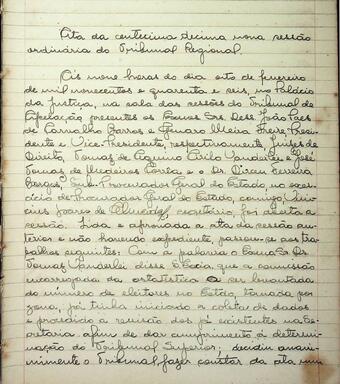 Ata da centesima decima nona sessão
ordinária do Tribunal Regional.
Ás nove horas do dia oito de fevereiro
de mil novecentos e quarenta e seis, no Palácio
da Justiça, na sala das sessões do Tribunal de
Apelação, presentes os Exmos. Srs. Des. João Paes
de Carvalho Barros e Genaro Freire, Presi-
dente e Vice-Presidente, respectivamente, Juises de
Direito, Tomaz de Aquino Cirilo Wanderlei e José
Tomaz de Medeiros Corrêa e o Dr. Dirceu Ferreira
Borges, Sub-Procurador Geral do Estado no exer-
cício de Procurador Geral do Estado, comigo
Soares de secretário, foi aberta a
sessão. Lida e aprovada a ata da sessão an-
terior e não havendo expediente, passou-se aos tra-
balhos seguintes: Com a palavra o Exmo. Sr. Dr.
Tomaz Wanderlei disse S. Excia. que a comissão
encarregada da estatística a ser levantada
do número de eleitores no Estado, tomada por
zona, já tinha iniciado a coleta de dados
e procedido a revisão dos já existentes na Se-
cretaria afim de dar cumprimento á determi-
nação do Tribunal Superior; decidiu unani-
mimente o Tribunal fazer constar da ata um